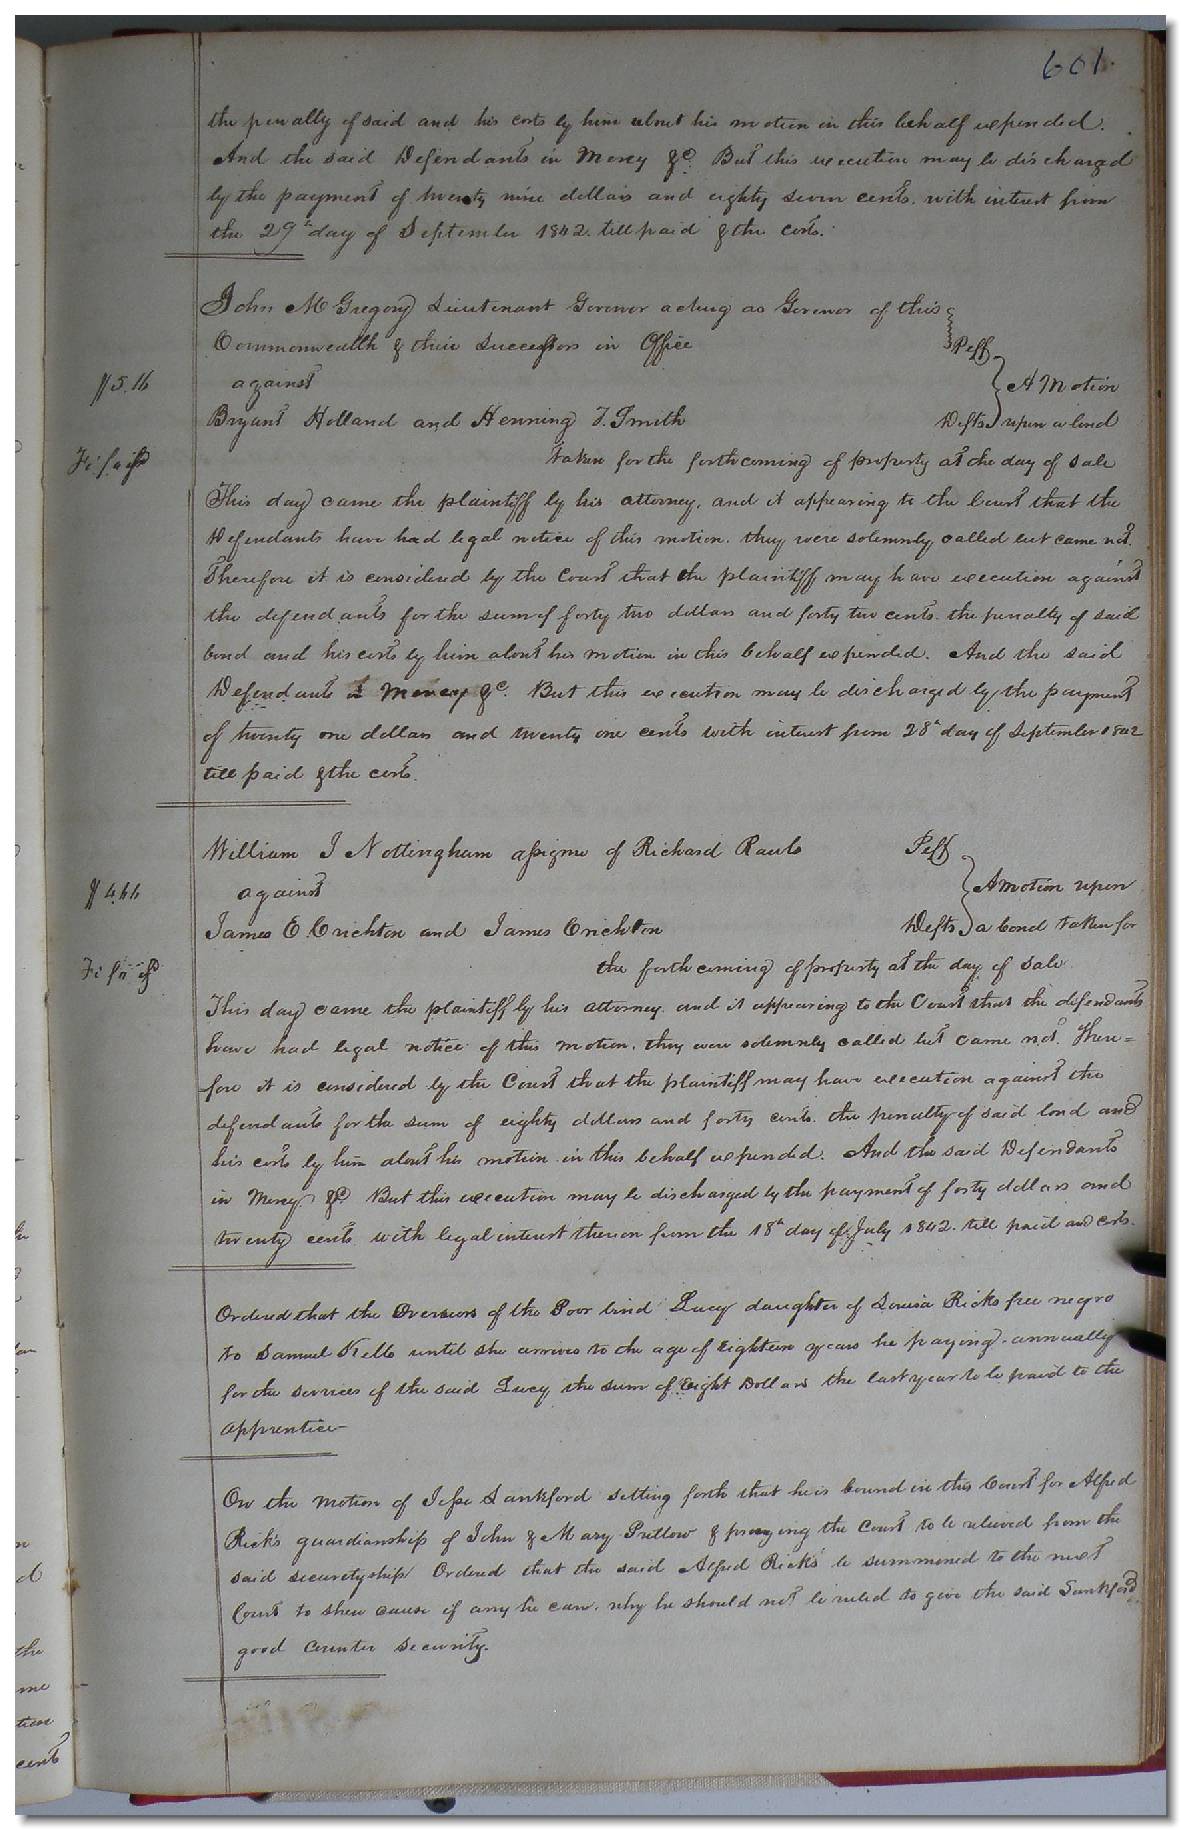 601.
the penalty of said and his costs by him about his motion in this behalf expended.
And the said Defendants in Mercy &c. But this execution may be discharged
by the payment of twenty nine dollars and eighty seven cents. with interest from
the 29th day of September 1842. till paid & the costs.
John M Gregory Lieutenant Govenor acting as Govenor of this
Commonwealth & their Successors in Office Plff
$5.16 against A Motion
Bryant Holland and Henning T. Smith Defts upon a bond
Fi: fa isd taken for the forthcoming of property at the day of sale
This day came the plaintiff by his attorney, and it appearing to the Court that the
Defendants have had legal notice of this motion. they were solemnly called but came not.
Therefore it is considered by the Court that the plaintiff may have execution against
the defendants for the sum of forty two dollars and forty two cents. the penalty of said
bond and his costs by him about his motion in this behalf expended. And the said
Defendants Mercy &c. But this execution may be discharged by the payment
of twenty one dollars and twenty one cents with interest from 28th day of September 1842
till paid & the costs.
William J Nottingham assignee of Richard Rawls Plff
$4.66 against A motion upon
James E. Crichton and James Crichton Defts a bond taken for
Fi: fa isd the forthcoming of property at the day of sale.
This day came the plaintiff by his attorney. and it appearing to the Court that the defendants
have had legal notice of this motion. they were solemnly called but came not. There=
fore it is considered by the Court that the plaintiff may have execution against the
defendants for the sum of eighty dollars and forty cents. the penalty of said bond and
his costs by him about his motion in this behalf expended. And the said Defendants
in Mercy &c But this execution may be discharged by the payment of forty dollars and
twenty cents with legal interest thereon from the 18th day of July 1842. till paid and costs.
Ordered that the Overseers of the Poor bind Lucy daughter of Louisa Ricks free negro
to Samuel Kello until she arrives to the age of Eighteen years he paying annually
for the services of the said Lucy the sum of Eight Dollars the last year to be paid to the
apprentice
On the motion of Jesse Lankford setting forth that he is bound in this Court for Alfred
Rick's guardianship of John & Mary Pretlow & praying the Court to be relieved from the
said securityship Ordered that the said Alfred Ricks be summoned to the next
Court to shew cause if any he can. why he should not be ruled to give the said Lankford
good counter security.